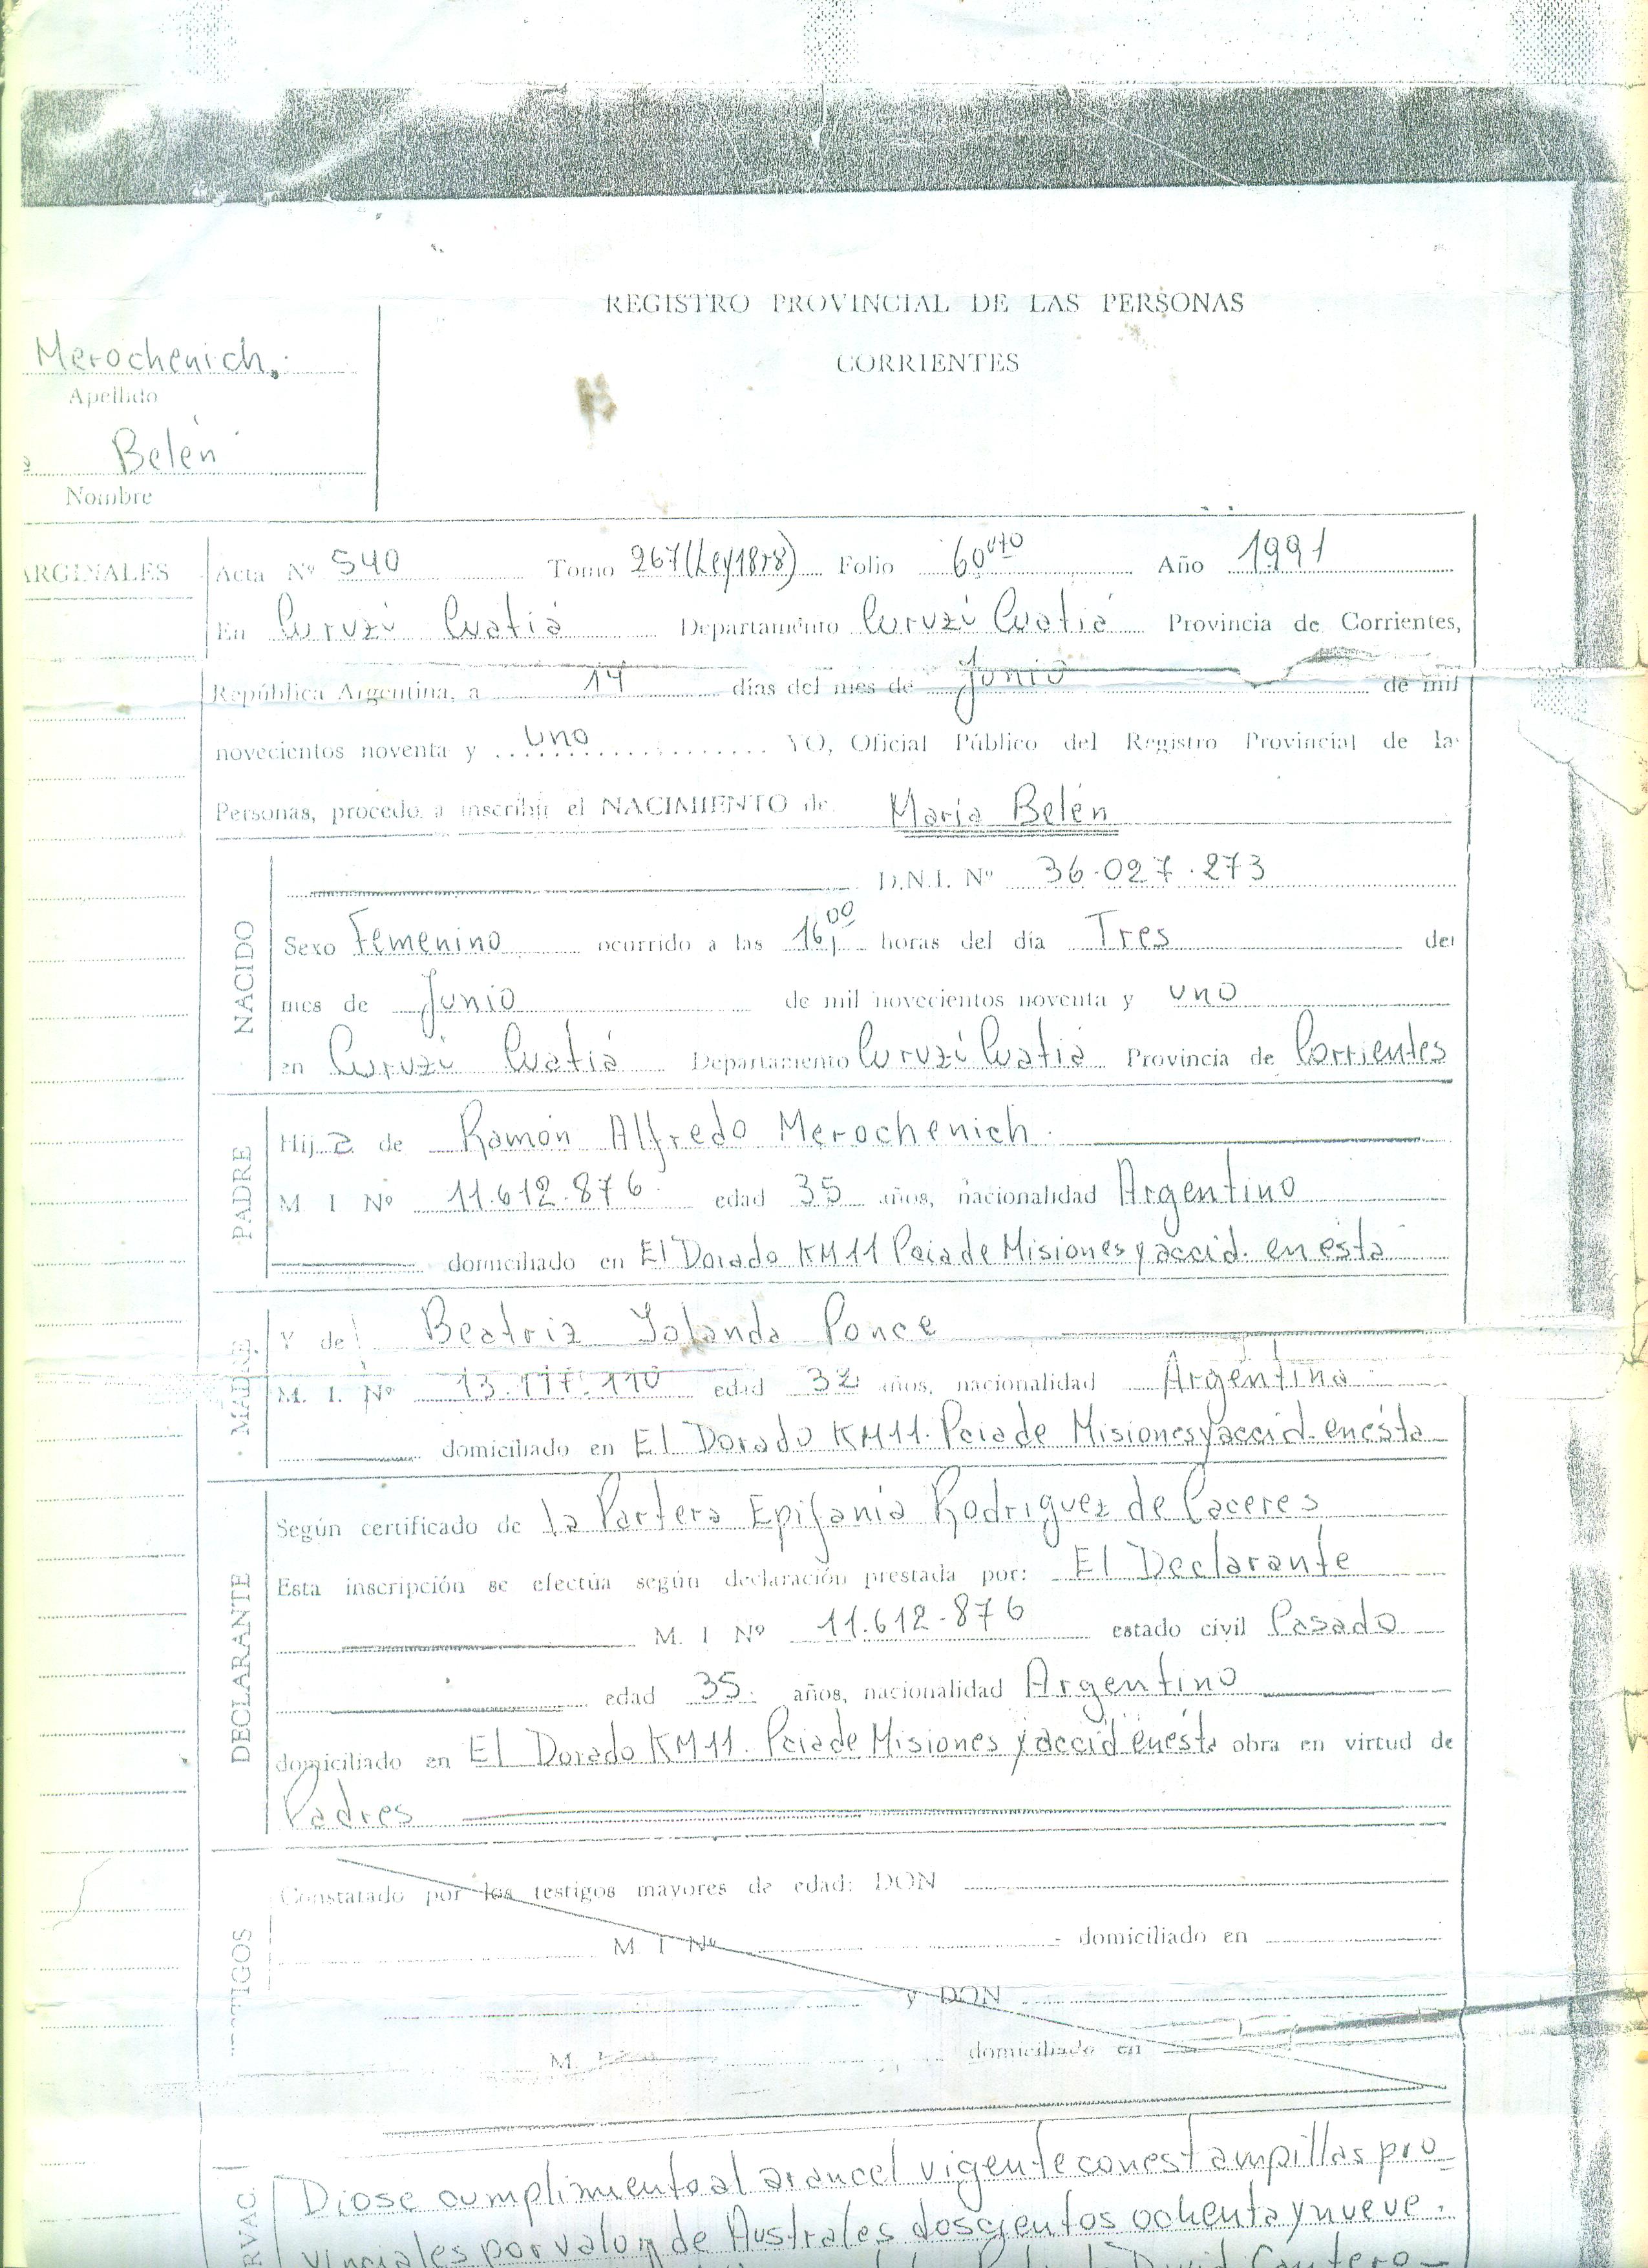 REGISTRO PROVINCIAL DE LAS PERSONAS
CORRIENTES
Merochenich.
Apellido
Belén
Nombre
ARGINALES
Acta Nº 540 Tomo 267(Ley18r8) Folio 60 vto Año 1991
En Curuzú Cuatiá Departamento Curuzú Cuatiá Provincia de Corrientes,
República Argentina, a 14 días del mes de Junio de mil
novecientos noventa y uno YO, Oficial Público del Registro Provincial de la
Personas, procedo a inscribir el NACIMIENTO de María Belén
NACIDO
D.N.I. Nº 36.027.273
Sexo Femenino ocurrido a las 16,00 horas del día Tres del
mes de Junio de mil novecientos noventa y uno
en Curuzú Cuatiá Departamento Curuzú Cuatiá Provincia de Corrientes
PADRE
Hija de Ramón Alfredo Merochenich.
M. I Nº 11.612.876. edad 35 años, nacionalidad Argentino
domiciliado en El Dorado KM11 Pcia de Misiones y accid. en esta
MADRE
Y de Beatriz Yolanda Ponce
M. I. Nº edad 32 años, nacionalidad Argentina
domiciliado en El Dorado KM11. Pcia de Misiones y accid. en ésta
DECLARANTE
Según certificado de la Partera Epifania Rodriguez de Caceres
Esta inscripción se efectúa según declaración prestada por: El Declarante
M. I Nº 11.612.876 estado civil Casado
edad 35. años, nacionalidad Argentino
domiciliado en El Dorado KM11. Pcia de Misiones y accid en ésta obra en virtud de
Padres
TIGOS
Constatado por los testigos mayores de edad: DON
M. I Nº domiciliado en
y DON
M. domiciliado en
RVAC
Diose cumplimiento al arancel vigente con estampillas pro
vinciales por valor de Australes doscientos ochenta y nueve.
David Cantero